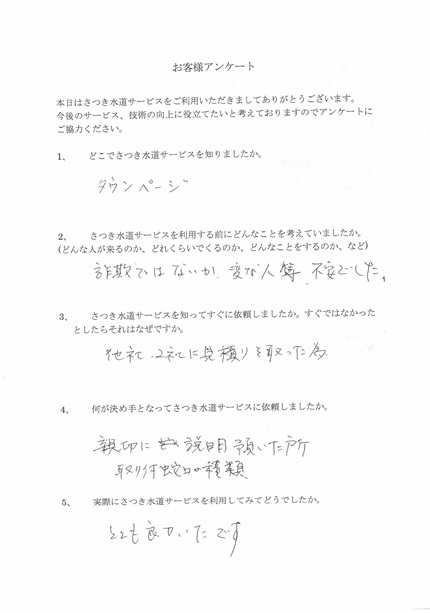 お客様アンケート
本日はさつき水道サービスをご利用いただきましてありがとうございます。
今後のサービス、技術の向上に役立てたいと考えておりますのでアンケートに
ご協力ください。
1、 どこでさつき水道サービスを知りましたか。
タウンページ
2、 さつき水道サービスを利用する前にどんなことを考えていましたか。
(どんな人が来るのか、どれくらいでくるのか、どんなことをするのか、など)
詐欺ではないか、変な人 、不安でした。
3、 さつき水道サービスを知ってすぐに依頼しましたか。すぐではなかった
としたらそれはなぜですか。
他社、2社に見積りを取った為
4、 何が決め手となってさつき水道サービスに依頼しましたか。
親切に 説明 頂いた所
取り付蛇口の種類
5、 実際にさつき水道サービスを利用してみてどうでしたか。
とても良かった です